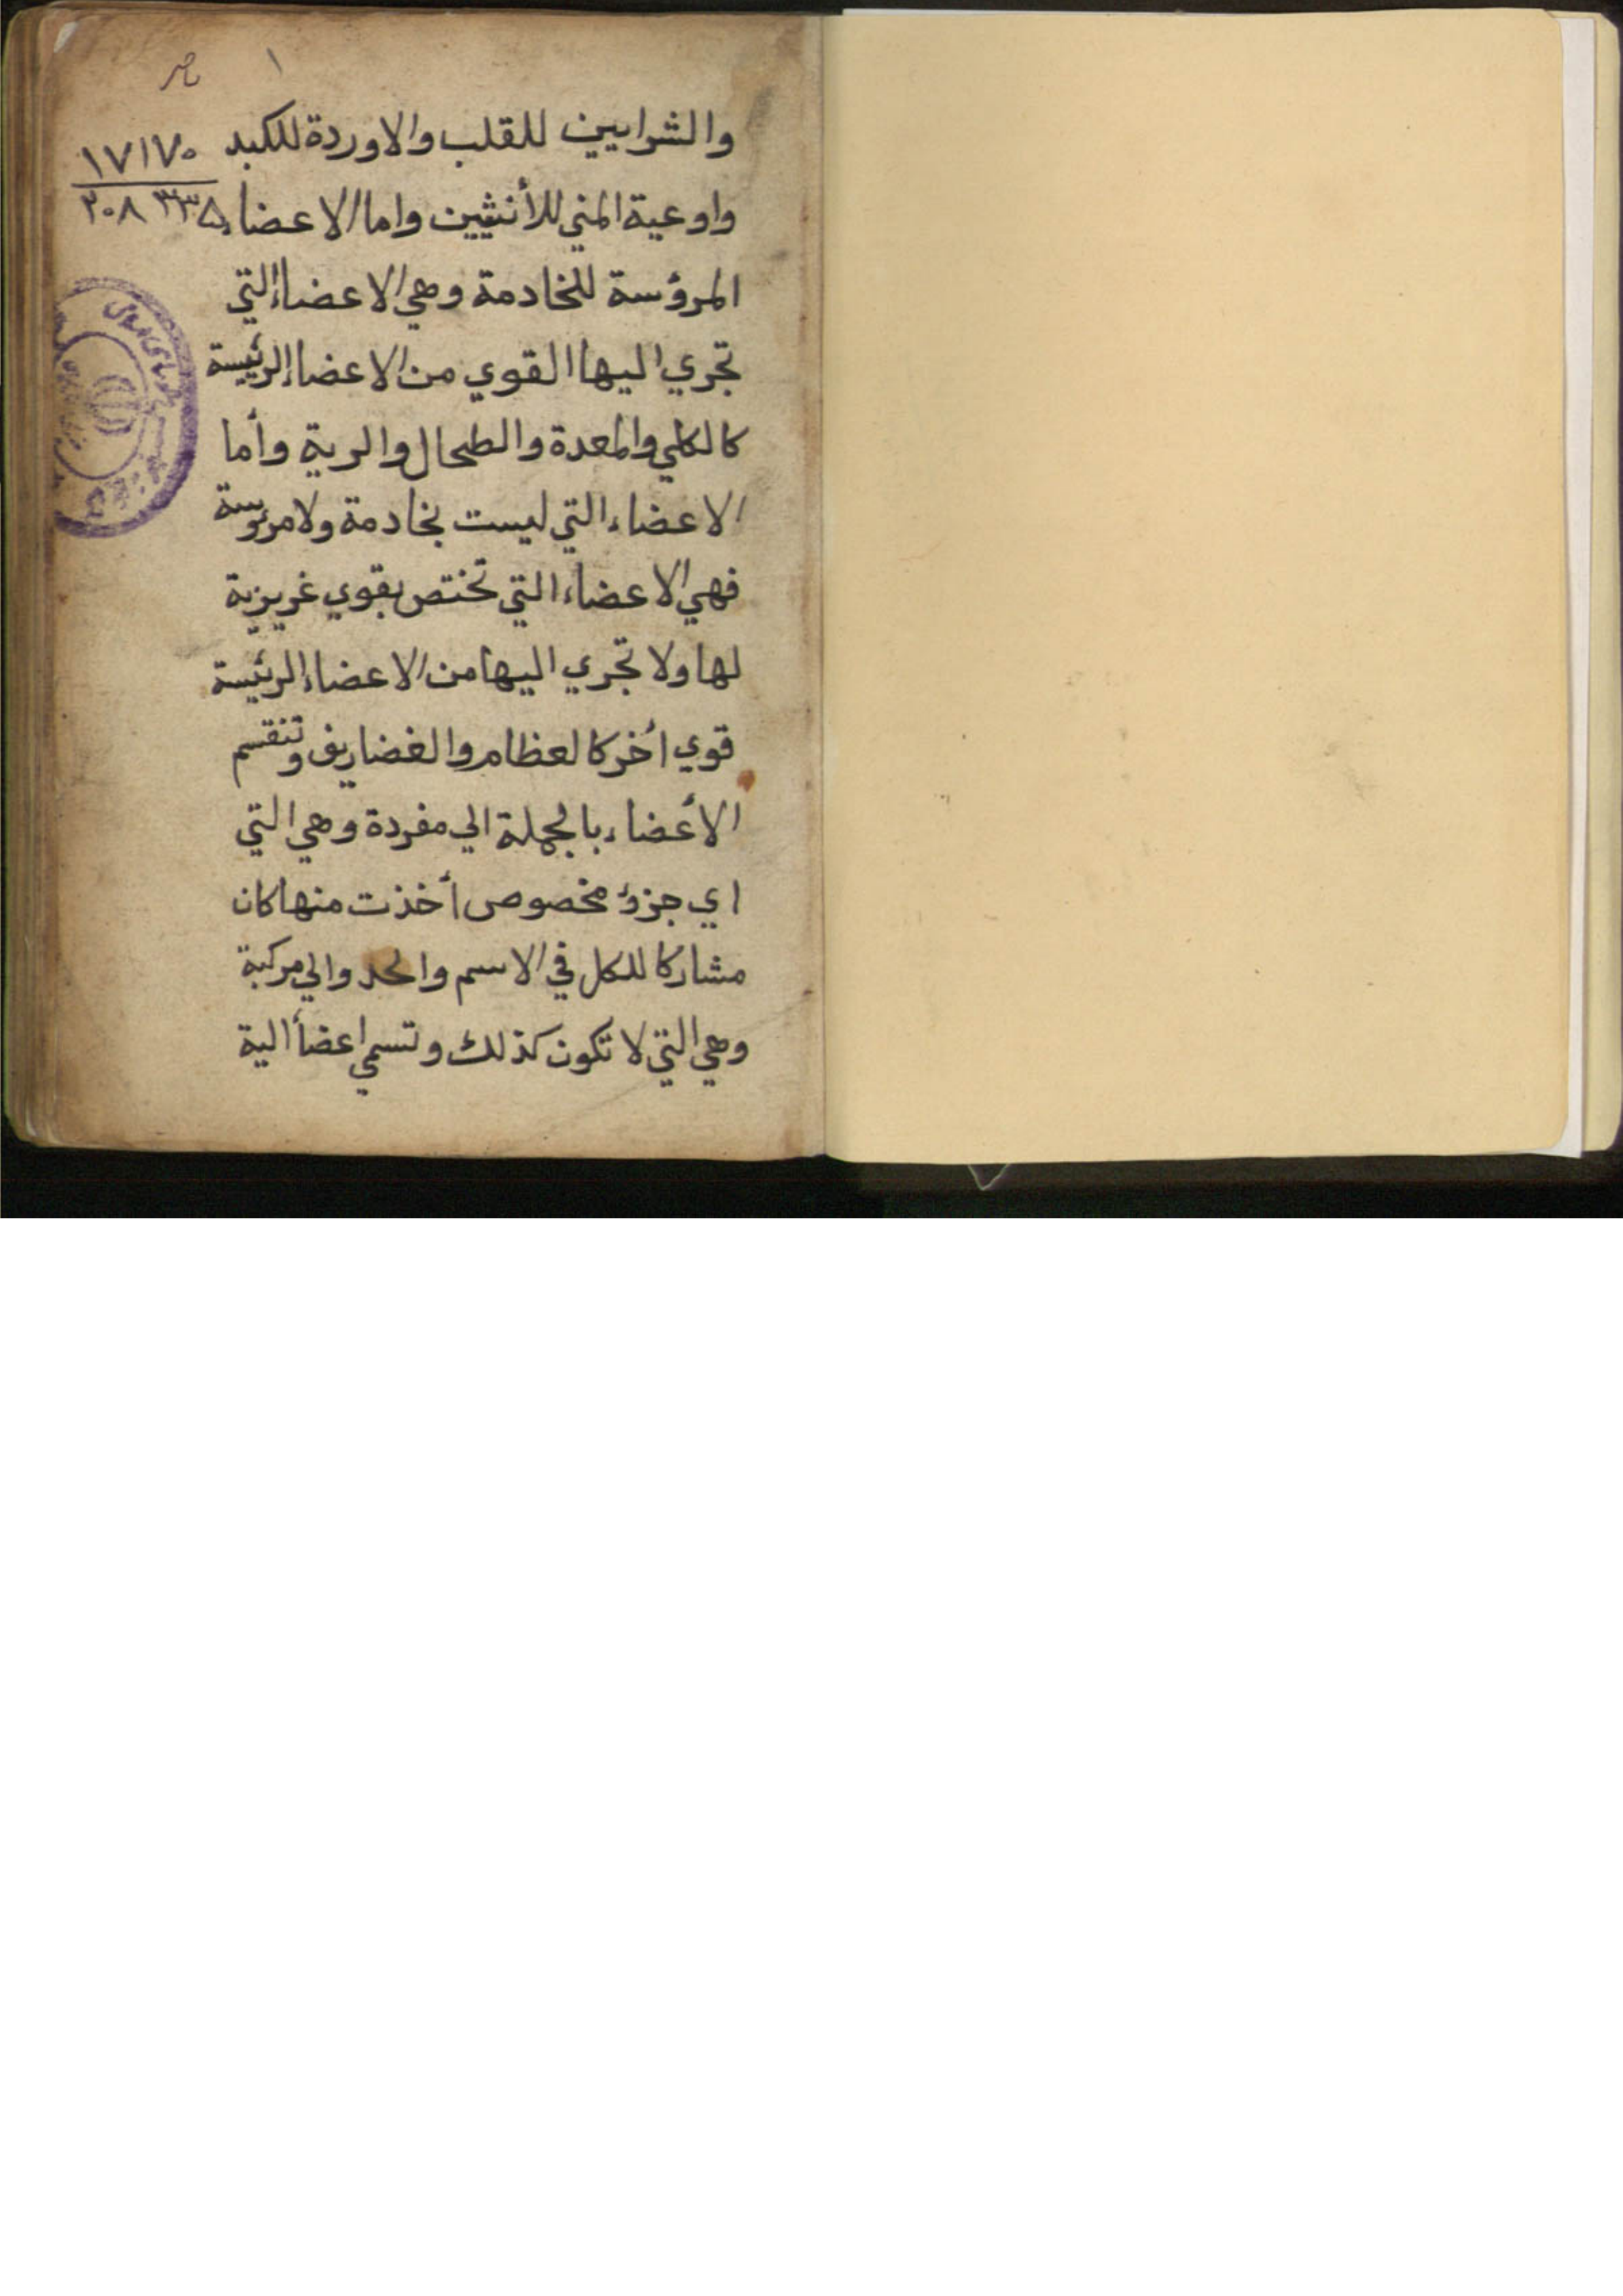 ١
والشرايين للقلب والاوردة للكبد
١٧١٧٠
واوعية المني للأنثيين واما الاعضاء
٢٠٨ ٣٣٥
المرؤسة للخادمة وهي الاعضاء التي
تجري اليها القوي من الاعضاء الرئيسة
كالكلي والمعدة والطحال والرية وأما
الاعضاء التي ليست بخادمة ولا مرؤسة
فهي الاعضاء التي تختص بقوي غريزية
لها ولا تجري اليها من الاعضاء الرئيسة
قوي اخر كالعظام والغضاريف وتنقسم
الأعضاء بالجملة الي مفردة وهي التي
اي جزؤ مخصوص أخذت منها كان
مشاركا للكل في الاسم والحد والي مركبة
وهي التي لا تكون كذلك وتسمي اعضأ الية